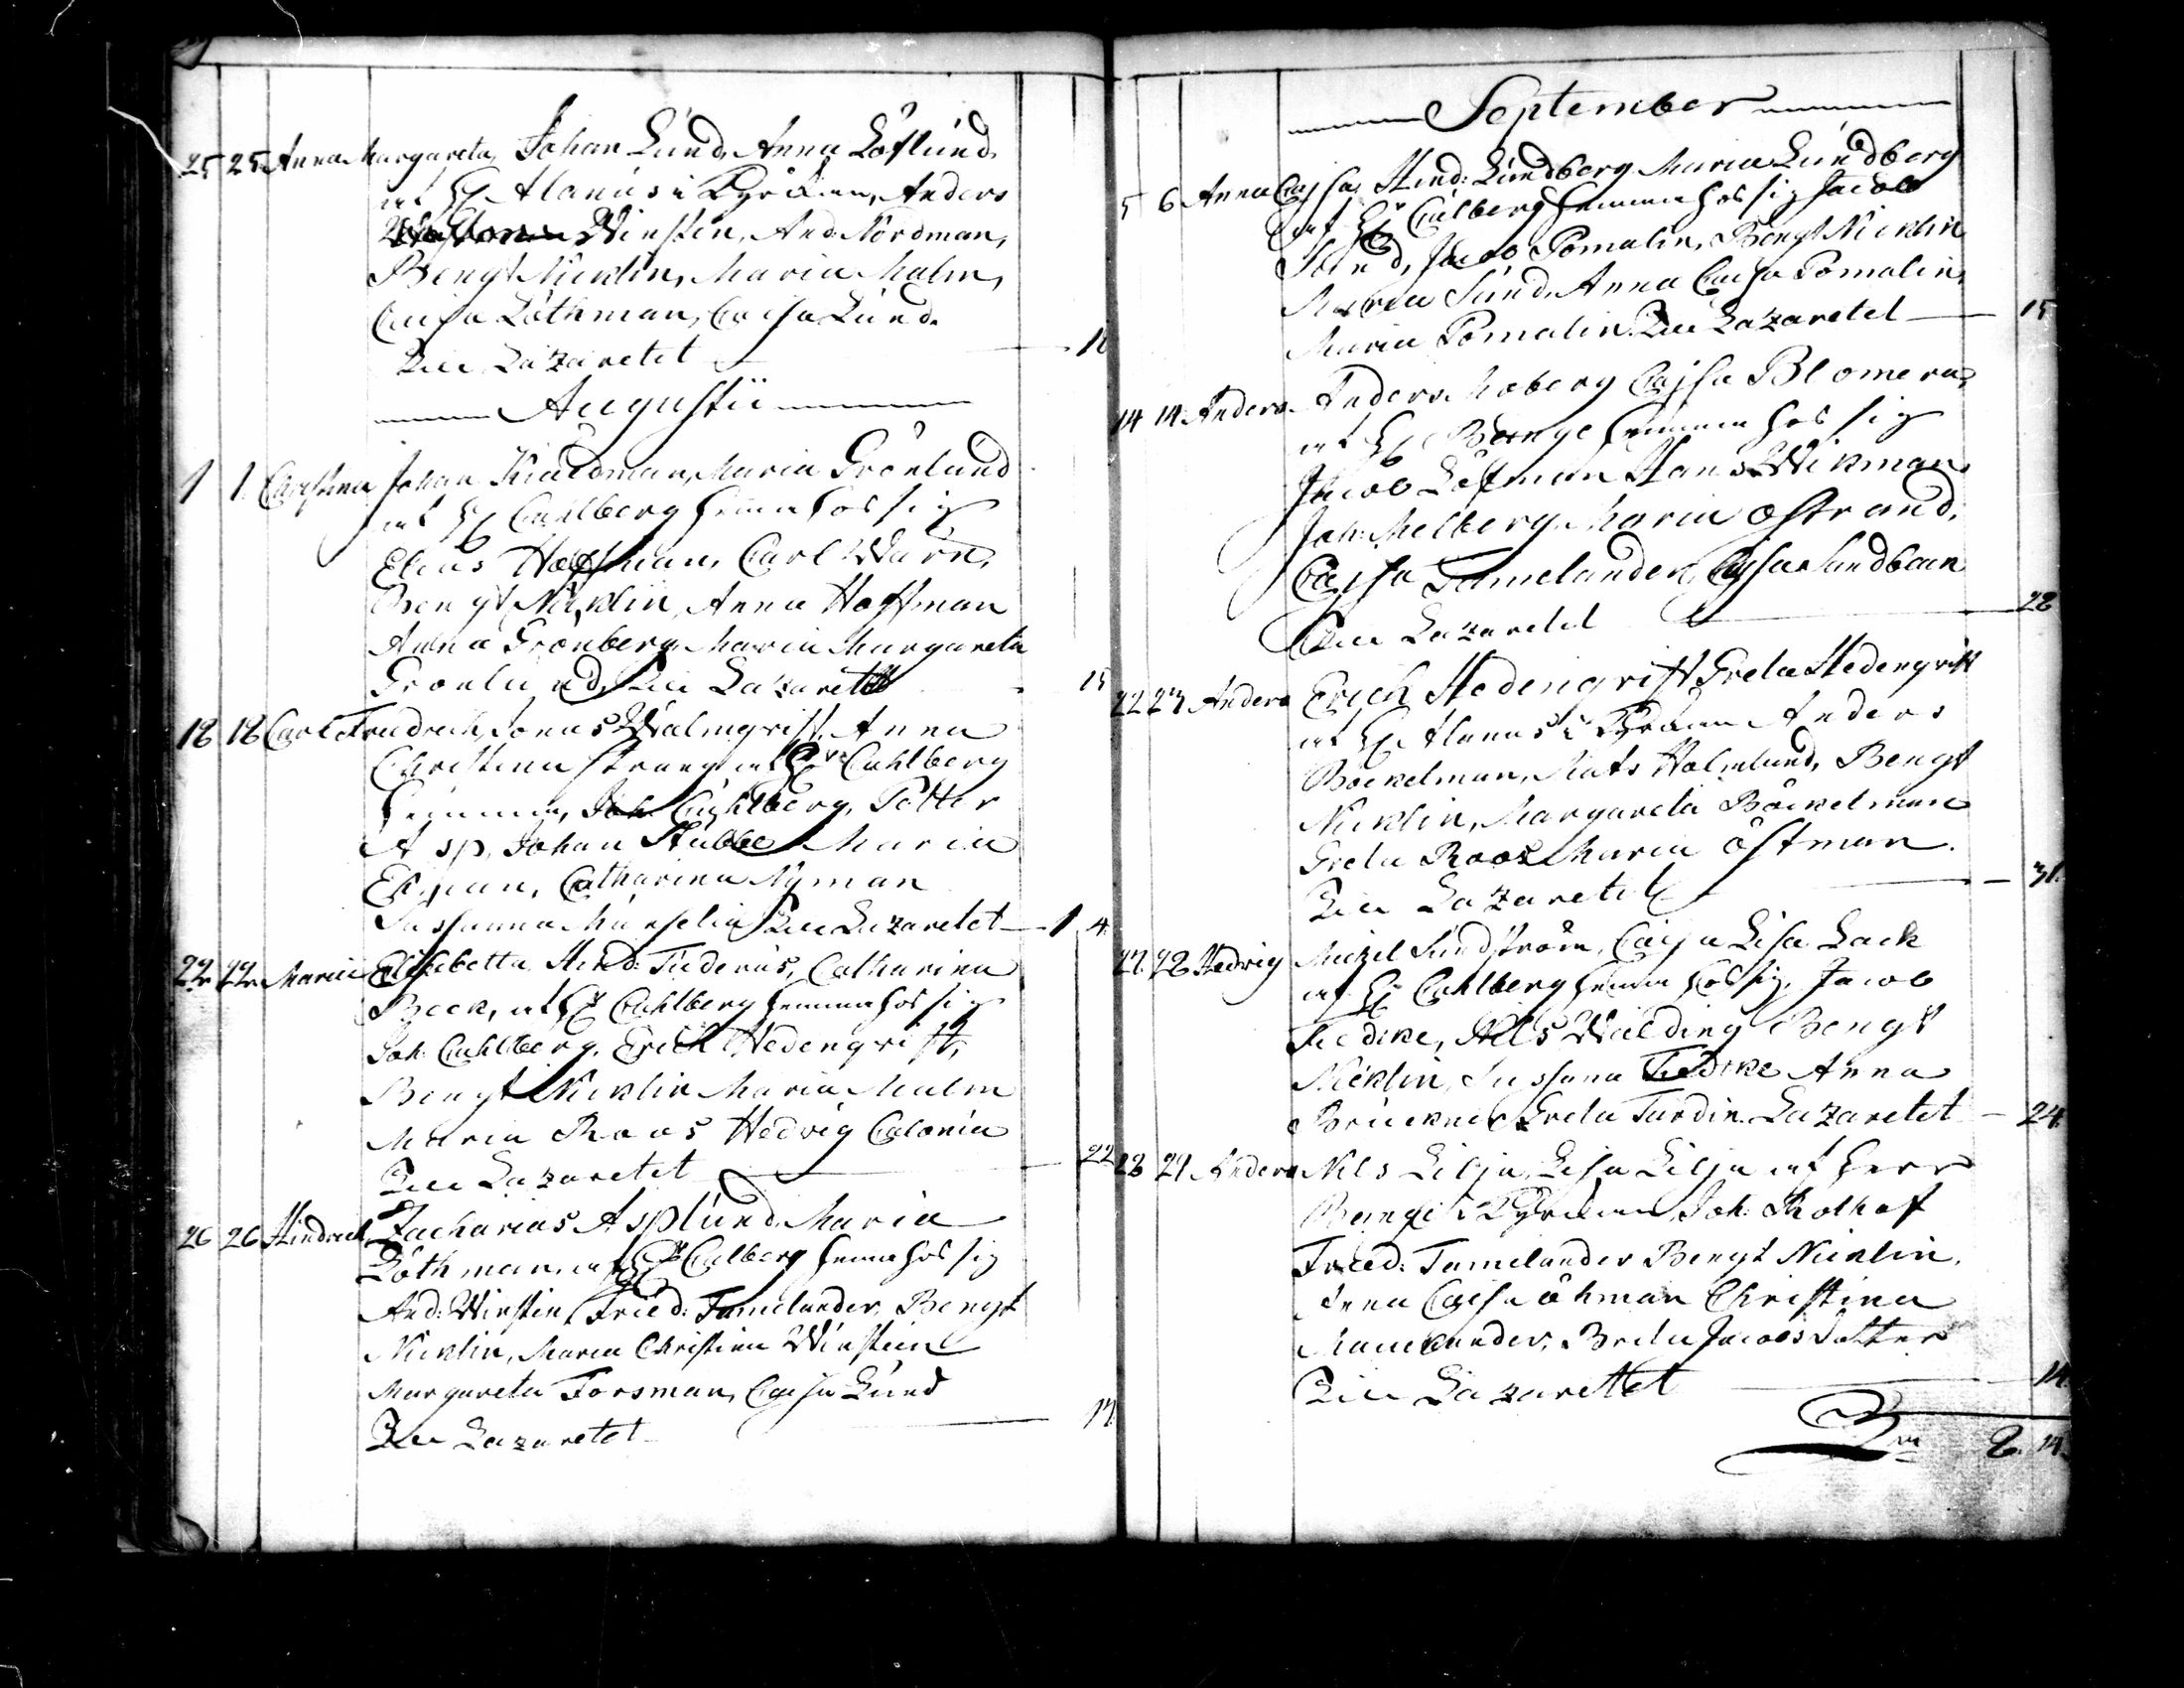 25 25 Anna Margareta, Johan Lund, Anna Löflund
af H. Alanus i Kyrckan, Anders
Winsten, And. Nordman,
Bengt Nicklin, Maria Malm,
Caisa Löthman, Caisa Lund.
Till Lazaretet
Augustii
1 1. Christina Johan Maria Grönlund
af H. Cahlberg hemma hos sig
Elias Hoffman, Carl Warn,
Bengt Nicklin, Anna Hoffman
Anna Gronberg, Maria Margareta
Gronlund, Till Lazaretet 15
18 18 Carl Friedrich, Jonas Walmqvist, Anna
Christina Strang af H. Cahlberg
hemma, Joh. Cahlberg, Petter
Asp, Johan Stubbe Maria
Ekman, Catharina Nyman
Sussanna Till Lazaretet 1 4
22 22 Maria Elisabetta Hind: Tiederus, Catharina
Beck, af H. Cahlberg hemma hos sig
Joh. Cahlberg, Erich Hedenqvist,
Bengt Nicklin Maria Malm
Maria Roos Hedvig Calonia
Till Lazaretet 22
26 26 Hindrich Zacharias Asplund, Maria
Löthman, af H. Calberg hemma hos sig
And: Winsten, Fried: Tamelander, Bengt
Nicklin, Maria Christina Winsten
Margareta Forsman, Caisa Lund
Till Lazaretet
September
5 6 Anna Cajsa, Hind: Lundberg Maria Lundberg
af H. Calberg hemma hos sig Jacob
Sund, Jacob Pomalin, Bengt Nicklin
Maria Sund, Anna Caisa Pomalin,
Maria Pomalin, Till Lazaretet 15
14 14 Anders Anders Moberg Cajsa Blomera,
af H. Bange hemma hos sig
Jacob Löfman Hans Wikman,
Joh: Melberg, Maria Östrand,
Cajsa Tamelander, Cajsa Sundbeck
Till Lazaretet 28
22 23 Anders Erich Hedenqvist Greta Hedenqvist
af H. Alanus i Kyrckan Anders
Böckelman, Mats Holmlund, Bengt
Nicklin, Margareta Böckelman
Greta Roos Maria Östman.
Till Lazaretet 31.
27. 28 Hedvig Michel Sundström, Caisa Lisa Lack
af H. Cahlberg hemma hos sig, Jacob
Tiedke, Nils Wilding Bengt
Nicklin, Sussana Tiedke Anna
Brückner Greta Tardin. Lazaretet 24.
28 29 Anders Nils Lilja, Lisa Lilja af Herr
Bange i Kyrckan, Joh: Rothof
Fried: Tamelander Bengt Nicklin,
Anna Caisa Öhman Christina
Brita Jacobs dotter
Till Lazarettet 14.